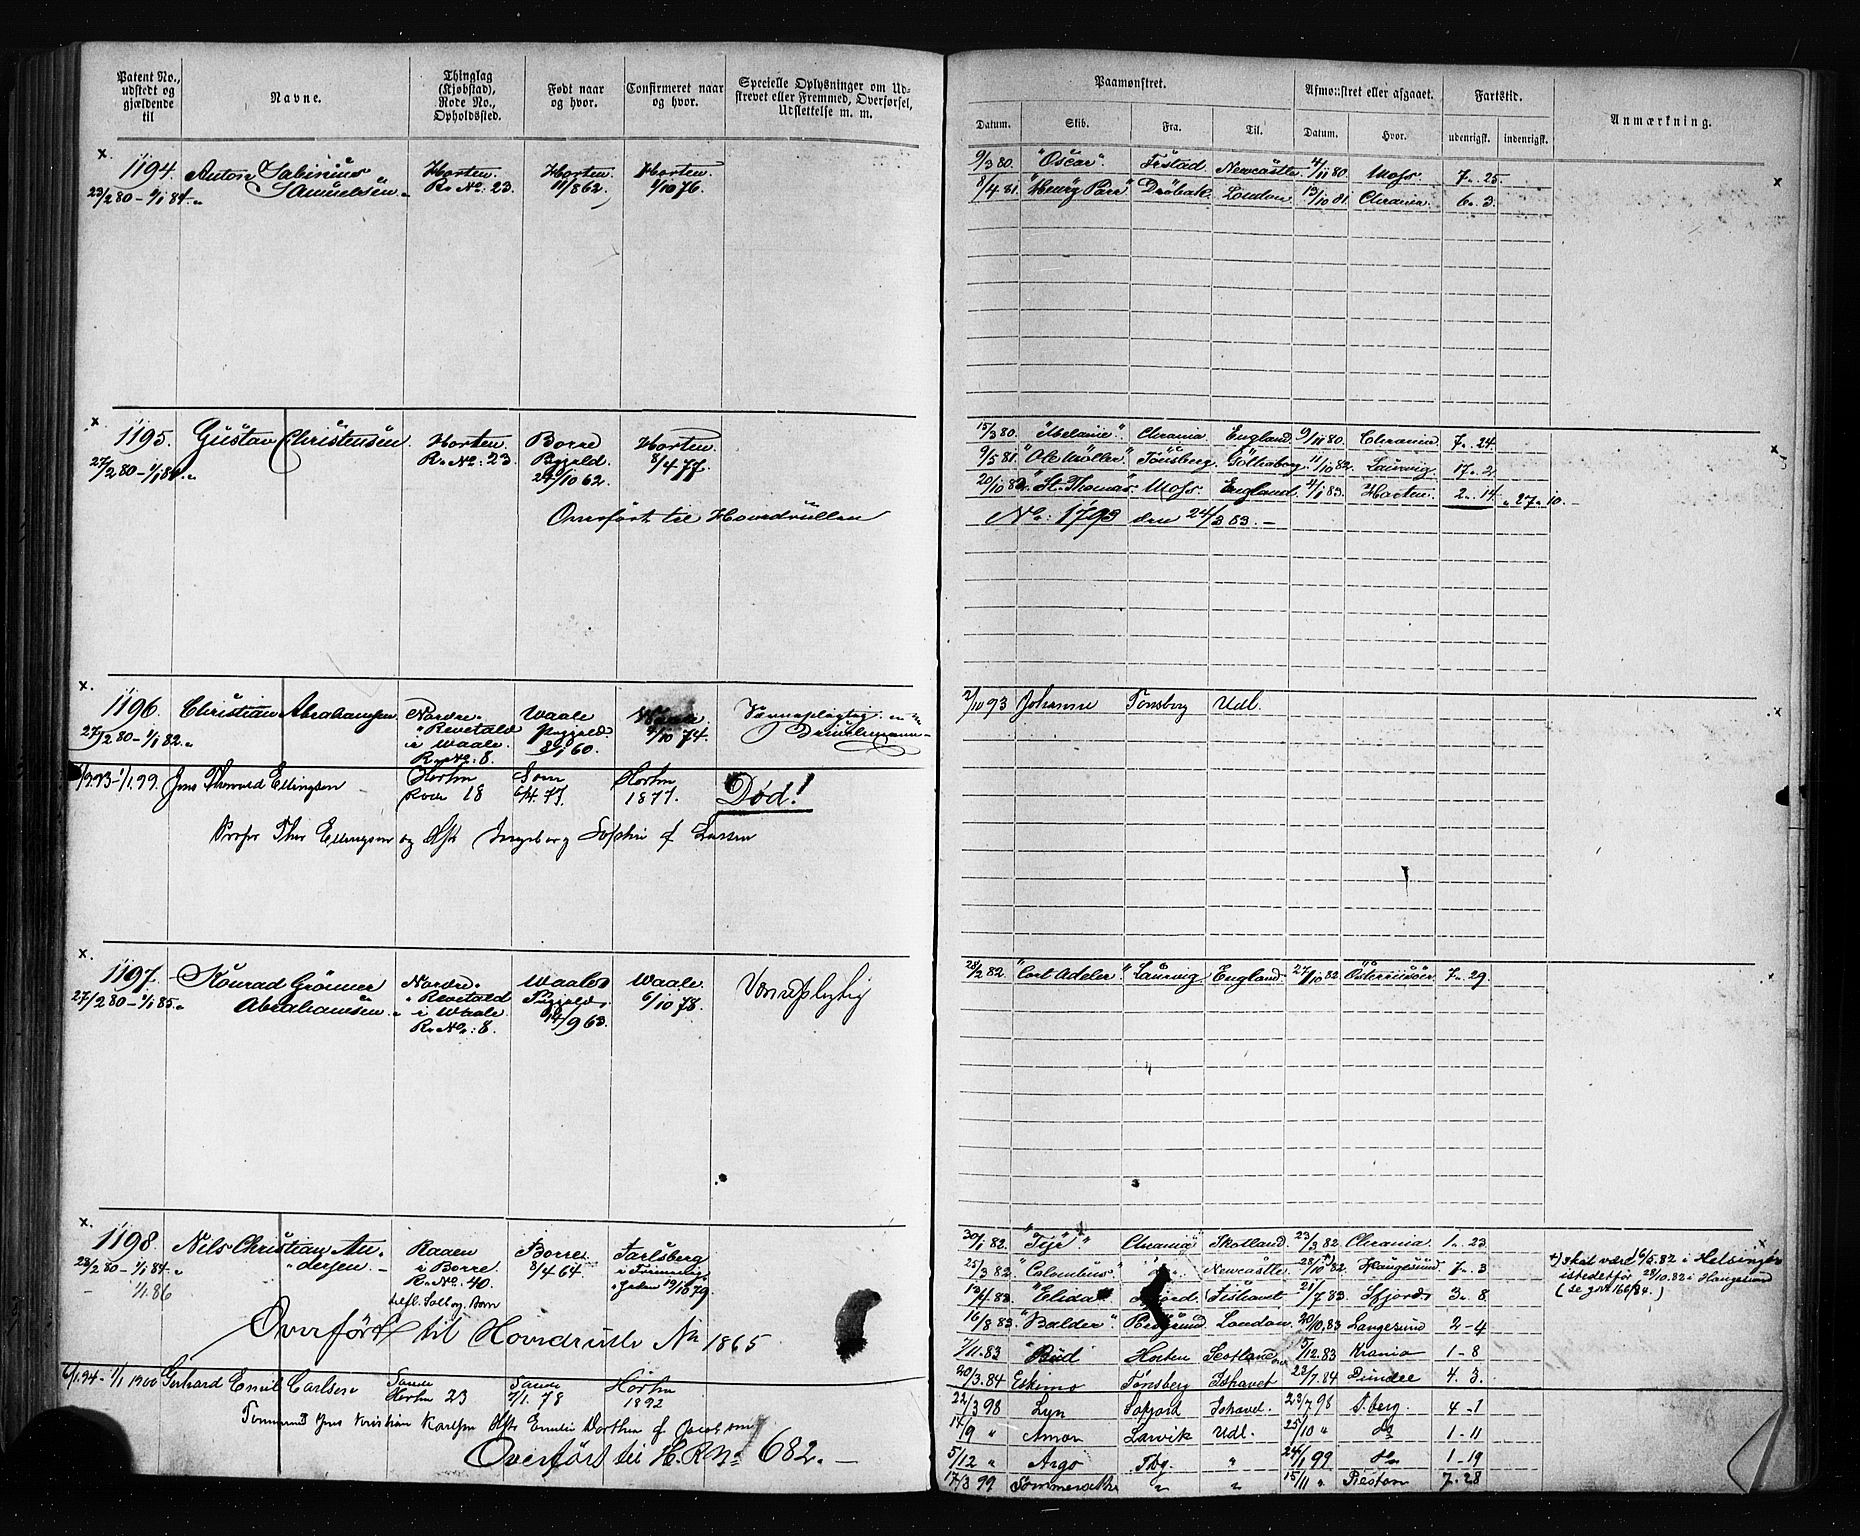 Patent No., udstedt og gjældende til
Navne.
Thinglag (Kjøbstad), Rode No., Opholdssted.
Født naar og hvor.
Confirmeret naar og hvor.
Specielle Oplysninger om Udstrevet eller Fremmed, Overførsel, Udslettelse m. m.
Paamønstret.
Afmønstret eller afgaaet.
Fartstid.
Anmærkning.
Datum. Skib. Fra. Til. Datum. Hvor. udenrigsk. indenrigsk.
x.
1194. Anton Sabinius Horten. Horten. Horten.
23/2 80 - 1/1 84 Samuelsen R. No. 23. 11/8 62. 1/10 76.
9/3 80. "Oscar". Frstad Newcastle 4/11 80. Moss. 7 25.
8/4 81. "Henry Parr" Drøbak. London 13/10 81. Chrania. 6 3.
x
x
1195. Gustav Christensen Horten. Borre Horten.
27/2 80 - 1/1 84 R. No: 23. Bygeld. 8/4 77.
24/10 62.
Overført til Hovedrullen
15/3 80. Chrania England. 9/11 80. Chrania. 7 24.
9/5 81. "Ole Møller". Tønsberg. Gøtheborg. 11/10 82. Laurvig. 17 2
20/10 82. "St. Thomas". Moss. England. 4/1 83. Horten. 2 14. 27 10.
No: 1793 den 24/3 83.
x.
1196. Christian Abrahamsen Nordre Waale 
27/2 80 - 1/1 82. Revetald Pygjeld 1/10 74.
i Waale. 8/1 60.
R. No: 8.
2/10 93 Johanne Tønsberg Udl.
93 - 1/1 99. Jens Thorvald Ellingsen Horten Som Horten Død!
Rode 18 1877.
Thor Ellingsen og Hst Ingeborg Sophie f Larsen
x.
1197. Konrad Grønner Nordre Waale Waale Værnepligtig
27/2 80 - 1/1 85. Abrahamsen Revetald 6/10 78.
i Waale 14/9 63.
R. No: 8.
28/2 82. "Cort Adeler". Laurvig England 27/10 82 Østerriisøer 7 29.
x.
1198. Nils Christian An- Raaen Borre Jarlsberg
28/2 80 - 1/1 84 dersen. i Borre 8/4 64.
1/1 86 R. No. 40.
Overført til Hovedrulle No 1865
30/1 82. "Tyr" Chrania Skotland 23/3 82 Chrania. 1 23.
25/3 82 "Colombus" Newcastle 28/10 82 Haugesund 7 3
"Elida" Fishavet 21/7 83. Sfjord 3 8.
16/8 83 "Balder". London 20/10 83 Langesund 2-4
7/11 83 Bud Horten Scotland 15/12 83 Krania 1-8
20/3 84 Eskimo Tønsberg Ishavet 23/7 84 Dundee 4 3.
+) skal være 6/5 82 i Helsingør
istedetfor 28/10 82 i Haugesund
6/1 94 - 1/1 1900 Gerhard Emil Carlsen Sande Sande Horten
Horten 23 7/1 78 1892
Tømmermand Jens Kristian Karlsen Hst Emilie Dorthea f Jacobsen
Overført til H.R No 682.
22/3 98 Lyn Safjord Ishavet 23/7 98 T.berg. 4-1
14/9 " Amor Larvik Udl. 25/10 " Do 1-11
5/12 " Argo Tbg " 24/1 99 Do 1-19
17/3 99 " " 15/11 " Preston 7-28